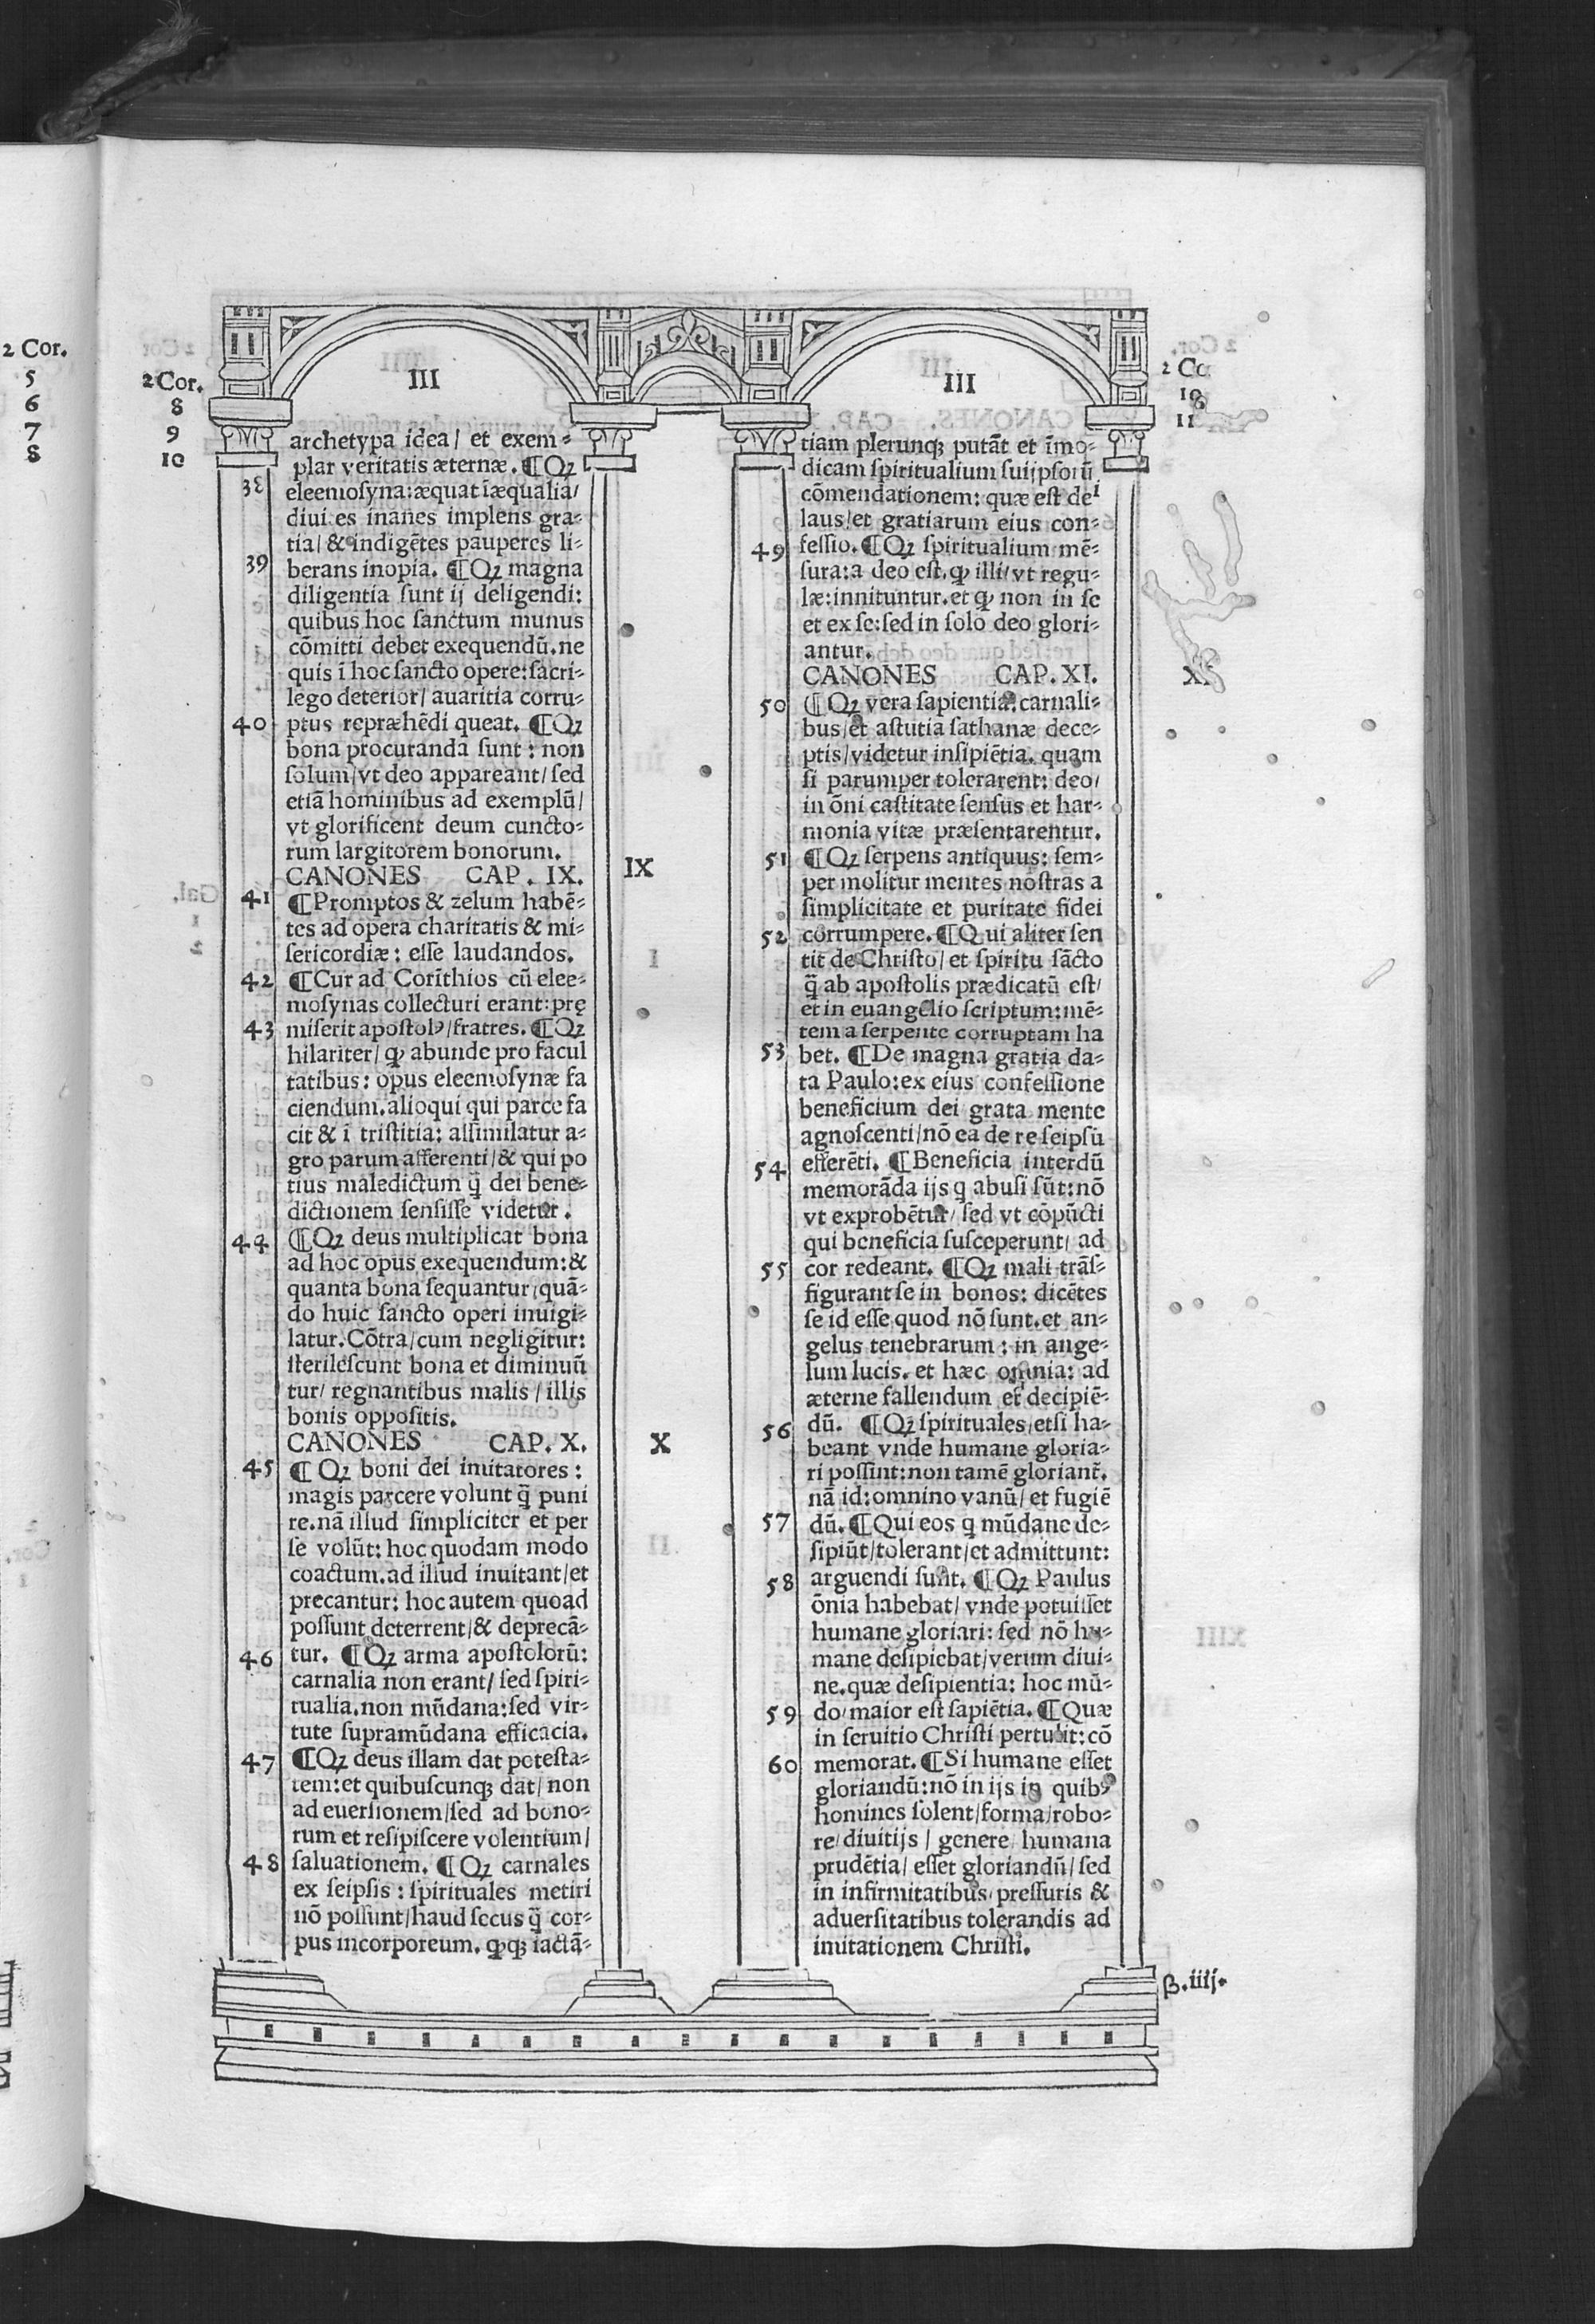 2 Cor.
5
6
7
8
2 Cor.
8
9
10
III
archetypa idea/ et exem-
plar veritatis æternæ. ¶Qꝫ
38 eleemosyna: æquat īæqualia/
diuites inanes implens gra-
tia/ & indigētes pauperes li-
39 berans inopia. ¶Qꝫ magna
diligentia sunt ij deligendi:
quibus hoc sanctum munus
cōmitti debet exequendū. ne
quis ī hoc sancto opere: sacri-
lego deterior/ auaritia corru-
40 ptus repræhēdi queat. ¶Qꝫ
bona procuranda sunt: non
solum/ vt deo appareant/ sed
etiā hominibus ad exemplū/
vt glorificent deum cuncto-
rum largitorem bonorum.
CANONES CAP. IX. IX
41 ¶Promptos & zelum habē-
tes ad opera charitatis & mi-
sericordiæ: esse laudandos.
42 ¶Cur ad Corīthios cū elee-
mosynas collecturi erant: prę
43 miserit apostolꝰ/ fratres. ¶Qꝫ
hilariter/ ꝙ abunde pro facul
tatibus: opus eleemosynæ fa
ciendum. alioqui qui parce fa
cit & ī tristitia: assimilatur a-
gro parum afferenti/ & qui po
tius maledictum q̄ dei bene-
dictionem sensisse videtur.
44 ¶Qꝫ deus multiplicat bona
ad hoc opus exequendum: &
quanta bona sequantur/ quā-
do huic sancto operi inuigi-
latur. Cōtra/ cum negligitur:
sterilescunt bona et diminuū
tur/ regnantibus malis/ illis
bonis oppositis.
CANONES CAP. X. X
45 ¶Qꝫ boni dei imitatores:
magis parcere volunt q̄ puni
re. nā illud simpliciter et per
se volūt: hoc quodam modo
coactum. ad illud inuitant/ et
precantur: hoc autem quoad
possunt deterrent/ & deprecā-
46 tur. ¶Qꝫ arma apostolorū:
carnalia non erant/ sed spiri-
tualia. non mūdana: sed vir-
tute supramūdana efficacia.
47 ¶Qꝫ deus illam dat potesta-
tem: et quibuscunqꝫ dat/ non
ad euersionem/ sed ad bono-
rum et resipiscere volentium/
48 saluationem. ¶Qꝫ carnales
ex seipsis: spirituales metiri
nō possunt/ haud secus q̄ cor-
pus incorporeum. ꝙqꝫ iactā-
2 Co
10
11
III
tiam plerunqꝫ putāt et īmo-
dicam spiritualium suijpsorū
cōmendationem: quæ est dei
laus/ et gratiarum eius con-
49 fessio. ¶Qꝫ spiritualium mē-
sura: a deo est. ꝙ illi/ vt regu-
læ: innituntur. et ꝙ non in se
et ex se: sed in solo deo glori-
antur.
CANONES CAP. XI.
50 ¶Qꝫ vera sapientia: carnali-
bus/ et astutia sathanæ dece-
ptis/ videtur insipiētia. quam
si parumper tolerarent: deo/
in ōni castitate sensus et har-
monia vitæ præsentarentur.
51 ¶Qꝫ serpens antiquus: sem-
per molitur mentes nostras a
simplicitate et puritate fidei
52 corrumpere. ¶Qui aliter sen
tit de Christo/ et spiritu sācto
q̄ ab apostolis prædicatū est/
et in euangelio scriptum: mē-
tem a serpente corruptam ha
53 bet. ¶De magna gratia da-
ta Paulo: ex eius confessione
beneficium dei grata mente
agnoscenti/ nō ea de re seipsū
54 efferēti. ¶Beneficia interdū
memorāda ijs q abusi sūt: nō
vt exprobētur/ sed vt cōpūcti
qui beneficia susceperunt/ ad
55 cor redeant. ¶Qꝫ mali trās-
figurant se in bonos: dicētes
se id esse quod nō sunt. et an-
gelus tenebrarum: in ange-
lum lucis. et hæc omnia: ad
æterne fallendum et decipiē-
56 dū. ¶Qꝫ spirituales/ etsi ha-
beant vnde humane gloria-
ri possint: non tamē gloriant̄.
nā id: omnino vanū/ et fugiē
57 dū. ¶Qui eos q mūdane de-
sipiūt/ tolerant/ et admittunt:
58 arguendi sunt. ¶Qꝫ Paulus
ōnia habebat/ vnde potuisset
humane gloriari: sed nō hu-
mane desipiebat/ verum diui-
ne. quæ desipientia: hoc mū-
59 do/ maior est sapiētia. ¶Quæ
in seruitio Christi pertulit: cō
60 memorat. ¶Si humane esset
gloriandū: nō in ijs in quibꝰ
homines solent/ forma/ robo-
re/ diuitijs/ genere/ humana
prudētia/ esset gloriandū/ sed
in infirmitatibus/ pressuris &
aduersitatibus tolerandis ad
imitationem Christi.
β.iiij.